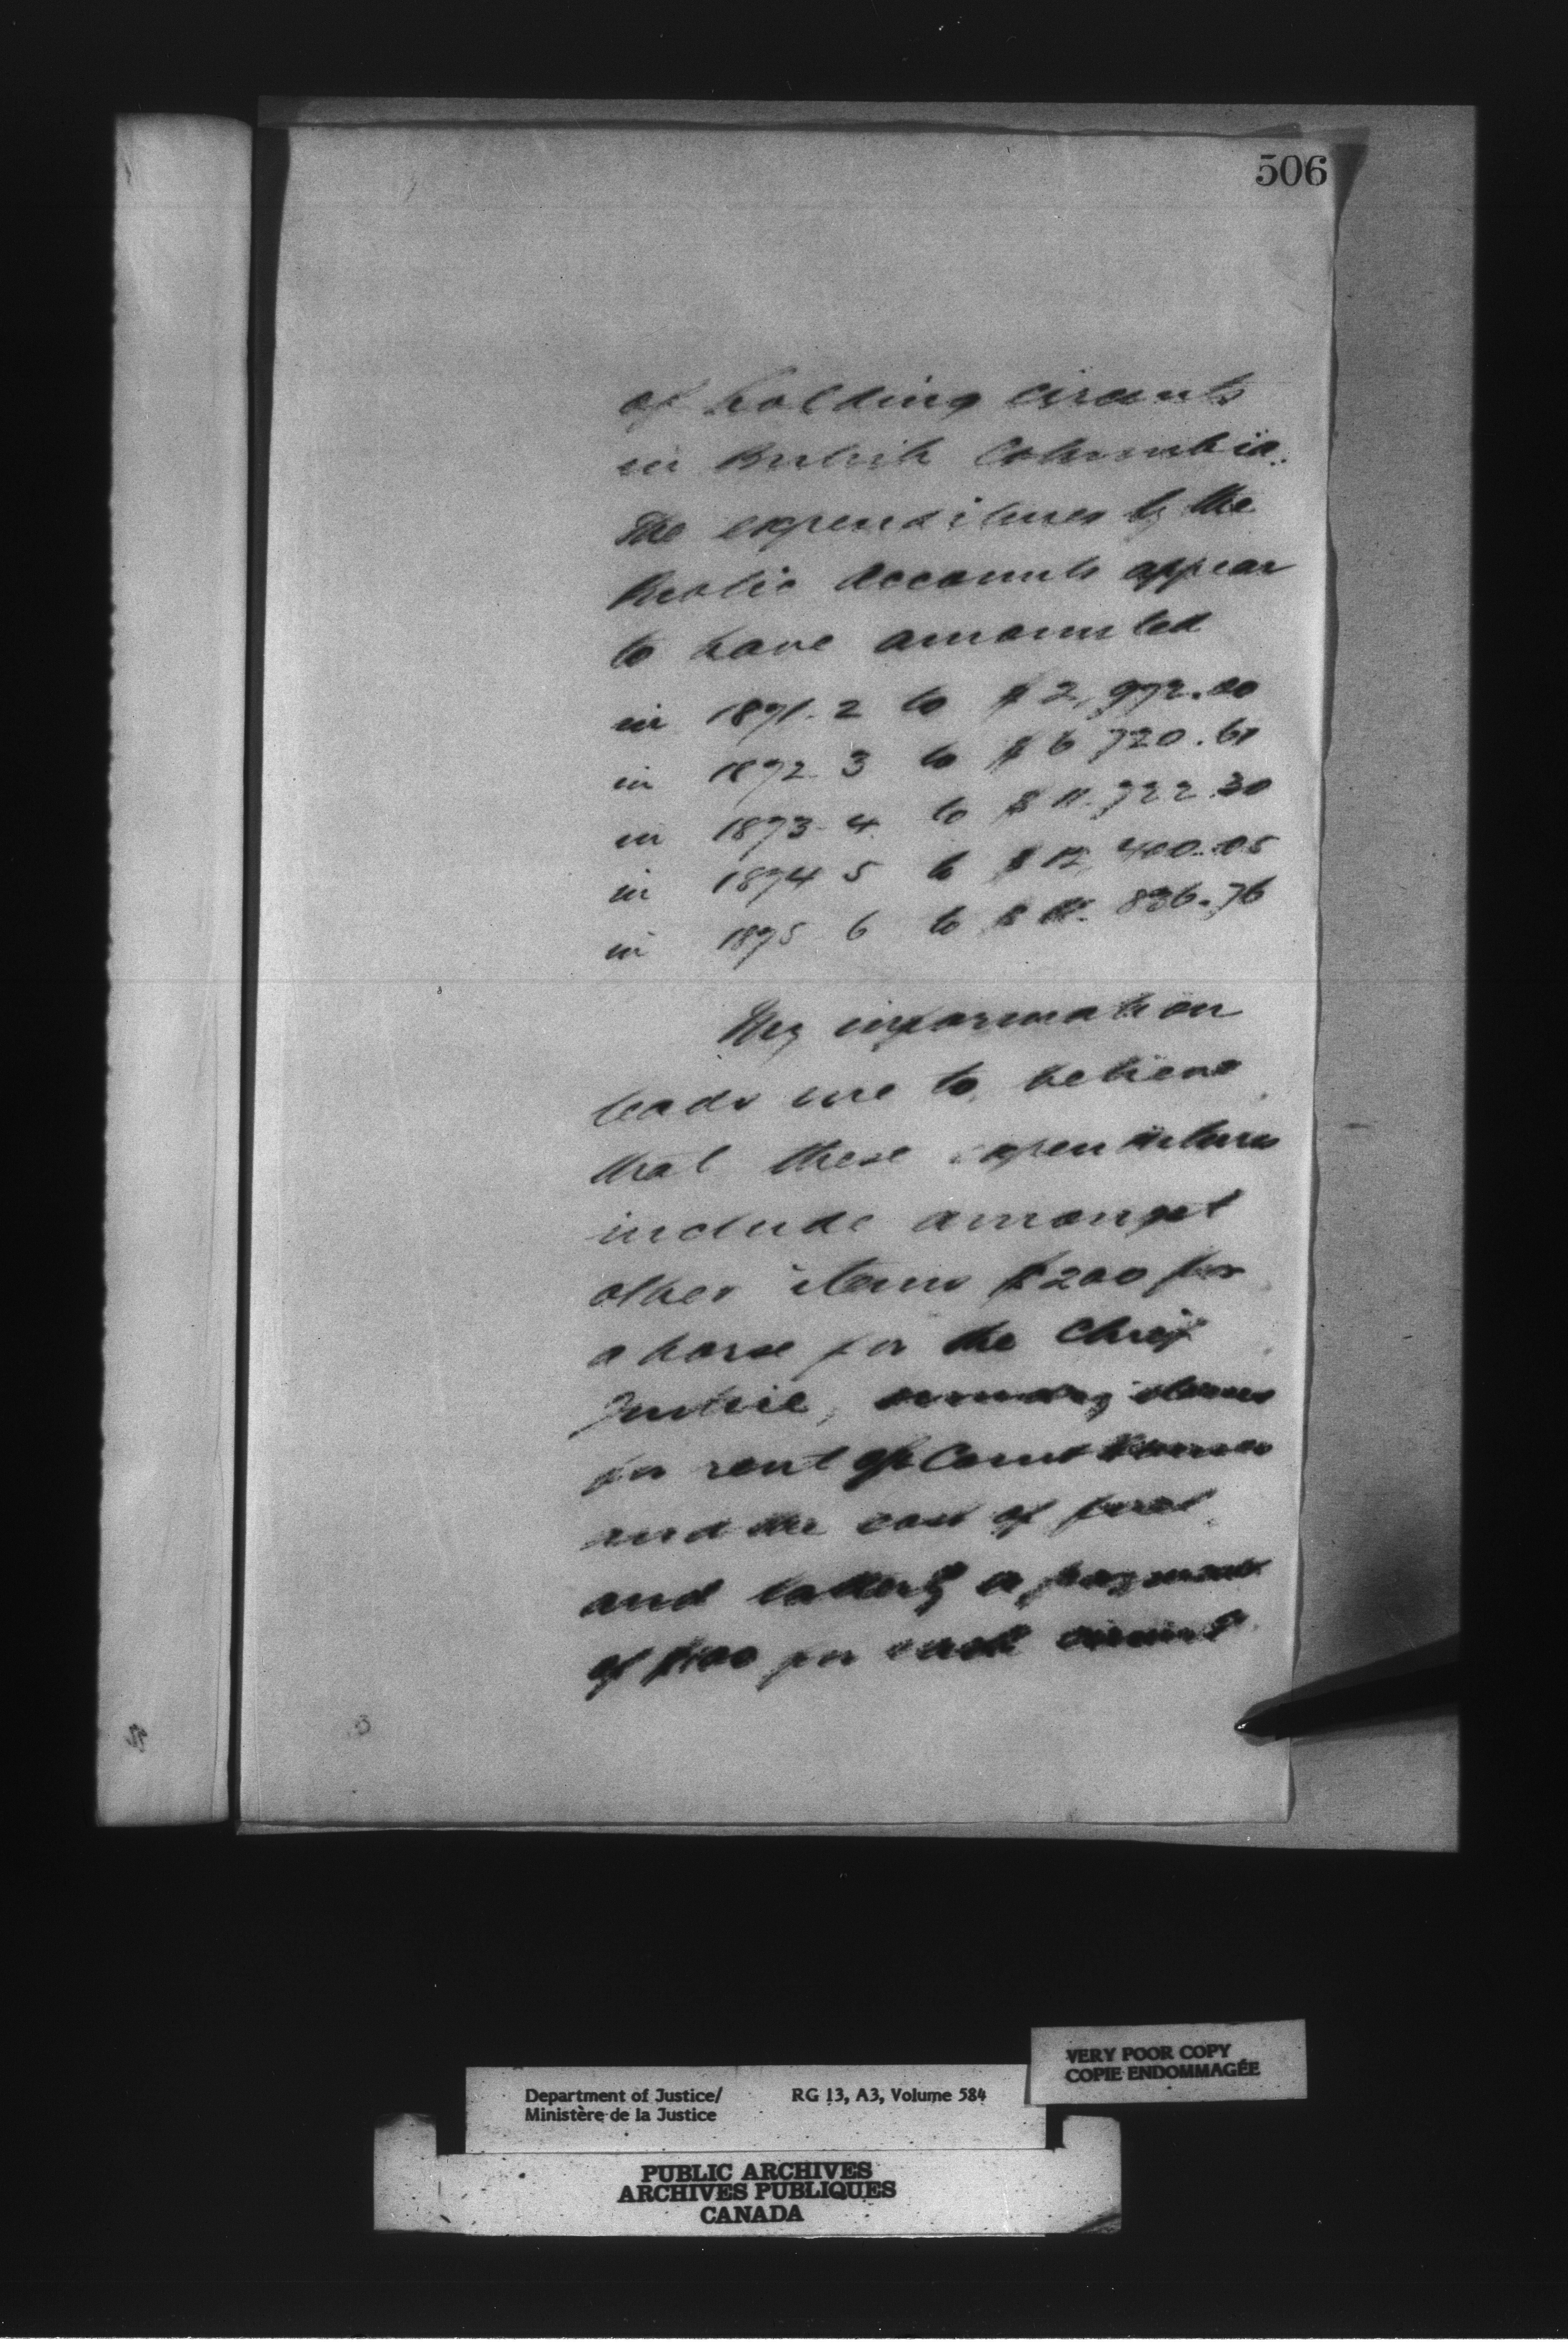 506
of holding circuits
in British Columbia.
The expenditures by the
Public Accounts appear
to have amounted
in 1871-2 to $2,972.00
in 1872-3 to $6 720.61
in 1873-4 to $11.722.30
in 1874 5 to $12,400.05
in 1875 6 to $ 836.76
My information
leads me to believe
that these expenditures
include amongst
other items $200 for
a horse for the Chief
Justice, sundry items
for rent of Court Houses
and the cost of fuel
and latterly a payment
of $100 for each circuit
3
VERY POOR COPY
COPIE ENDOMMAGÉE
Department of Justice/ RG 13, A3, Volume 584
Ministère de la Justice
PUBLIC ARCHIVES
ARCHIVES PUBLIQUES
CANADA